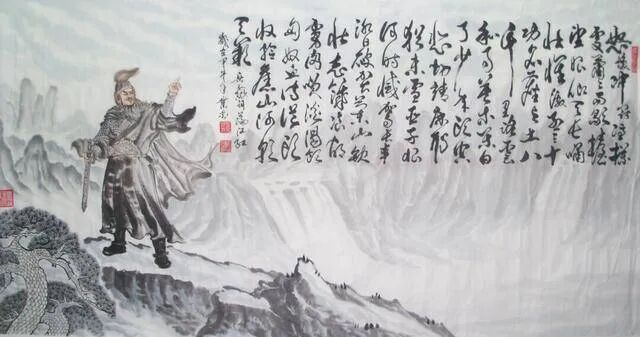 怒髮冲冠憑欄
處瀟瀟雨歇抬
望眼仰天長嘯
壯懷激烈三十
功名塵與土八
千里路雲
和月莫等閒白
了少年頭空
悲切靖康耻
猶未雪臣子恨
何時滅駕長車
踏破賀蘭山缺
壯志飢餐胡
虜肉笑談渴飲
匈奴血待從頭
收拾舊山河朝
天闕 岳飛詞滿江紅
歲在甲午年